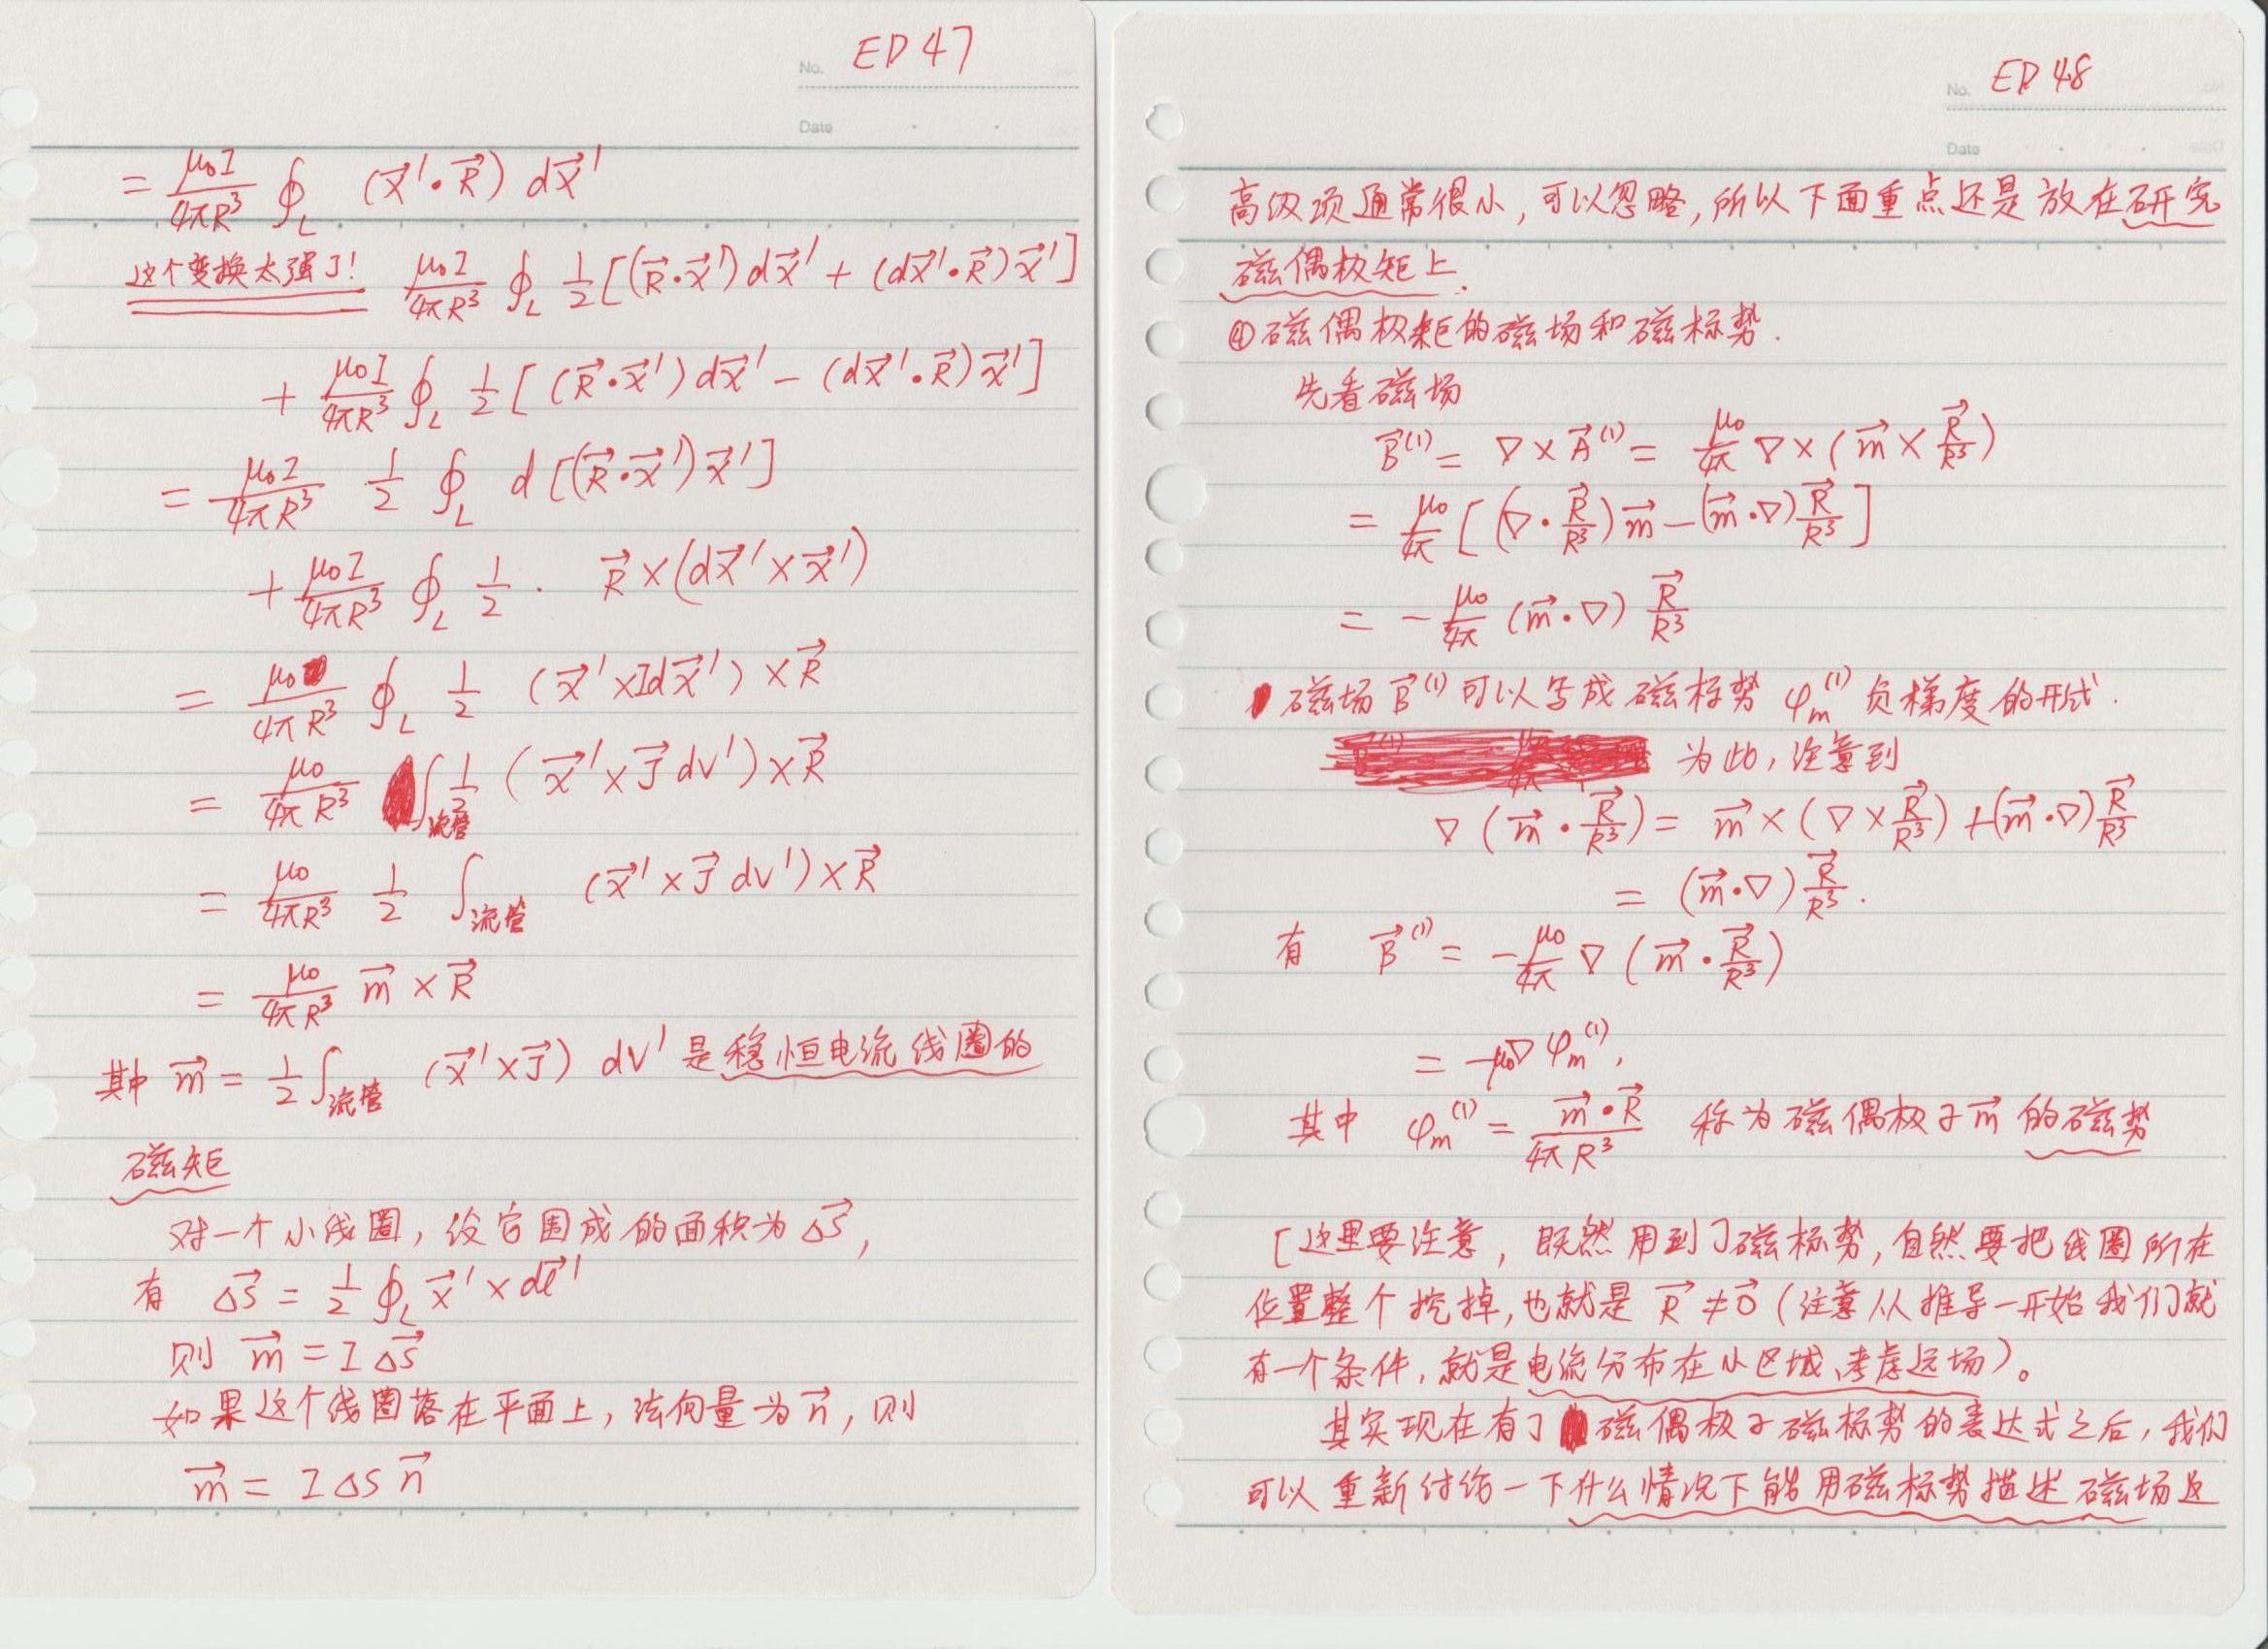 No. ED 47
Date
= μ₀I/4πR³ ∮_L (x⃗′·R⃗) dx⃗′
这个变换太强了! μ₀I/4πR³ ∮_L 1/2 [(R⃗·x⃗′)dx⃗′ + (dx⃗′·R⃗)x⃗′]
+ μ₀I/4πR³ ∮_L 1/2 [(R⃗·x⃗′)dx⃗′ − (dx⃗′·R⃗)x⃗′]
= μ₀I/4πR³ 1/2 ∮_L d[(R⃗·x⃗′)x⃗′]
+ μ₀I/4πR³ ∮_L 1/2 · R⃗×(dx⃗′×x⃗′)
= μ₀/4πR³ ∮_L 1/2 (x⃗′×Idx⃗′)×R⃗
= μ₀/4πR³ ∫_流管 1/2 (x⃗′×J⃗dV′)×R⃗
= μ₀/4πR³ 1/2 ∫_流管 (x⃗′×J⃗dV′)×R⃗
= μ₀/4πR³ m⃗×R⃗
其中 m⃗ = 1/2 ∫_流管 (x⃗′×J⃗) dV′ 是稳恒电流线圈的
磁矩
对一个小线圈，设它围成的面积为 ΔS⃗,
有 ΔS⃗ = 1/2 ∮_L x⃗′×dl⃗′
则 m⃗ = IΔS⃗
如果这个线圈落在平面上，法向量为n⃗，则
m⃗ = IΔS n⃗
No. ED 48
Date
高级项通常很小，可以忽略，所以下面重点还是放在研究
磁偶极矩上.
④磁偶极矩的磁场和磁标势.
先看磁场
B⃗⁽¹⁾ = ∇×A⃗⁽¹⁾ = μ₀/4π ∇×(m⃗×R⃗/R³)
= μ₀/4π [(∇·R⃗/R³)m⃗ − (m⃗·∇)R⃗/R³]
= −μ₀/4π (m⃗·∇) R⃗/R³
磁场B⃗⁽¹⁾可以写成磁标势 φₘ⁽¹⁾ 负梯度的形式.
为此，注意到
∇(m⃗·R⃗/R³) = m⃗×(∇×R⃗/R³) + (m⃗·∇)R⃗/R³
= (m⃗·∇)R⃗/R³.
有 B⃗⁽¹⁾ = −μ₀/4π ∇(m⃗·R⃗/R³)
= −μ₀∇φₘ⁽¹⁾,
其中 φₘ⁽¹⁾ = m⃗·R⃗/4πR³ 称为磁偶极子m⃗的磁势
[这里要注意，既然用到了磁标势，自然要把线圈所在
位置整个挖掉，也就是 R⃗≠0⃗（注意从推导一开始我们就
有一个条件，就是电流分布在小区域、考虑远场）。
其实现在有了磁偶极子磁标势的表达式之后，我们
可以重新讨论一下什么情况下能用磁标势描述磁场这